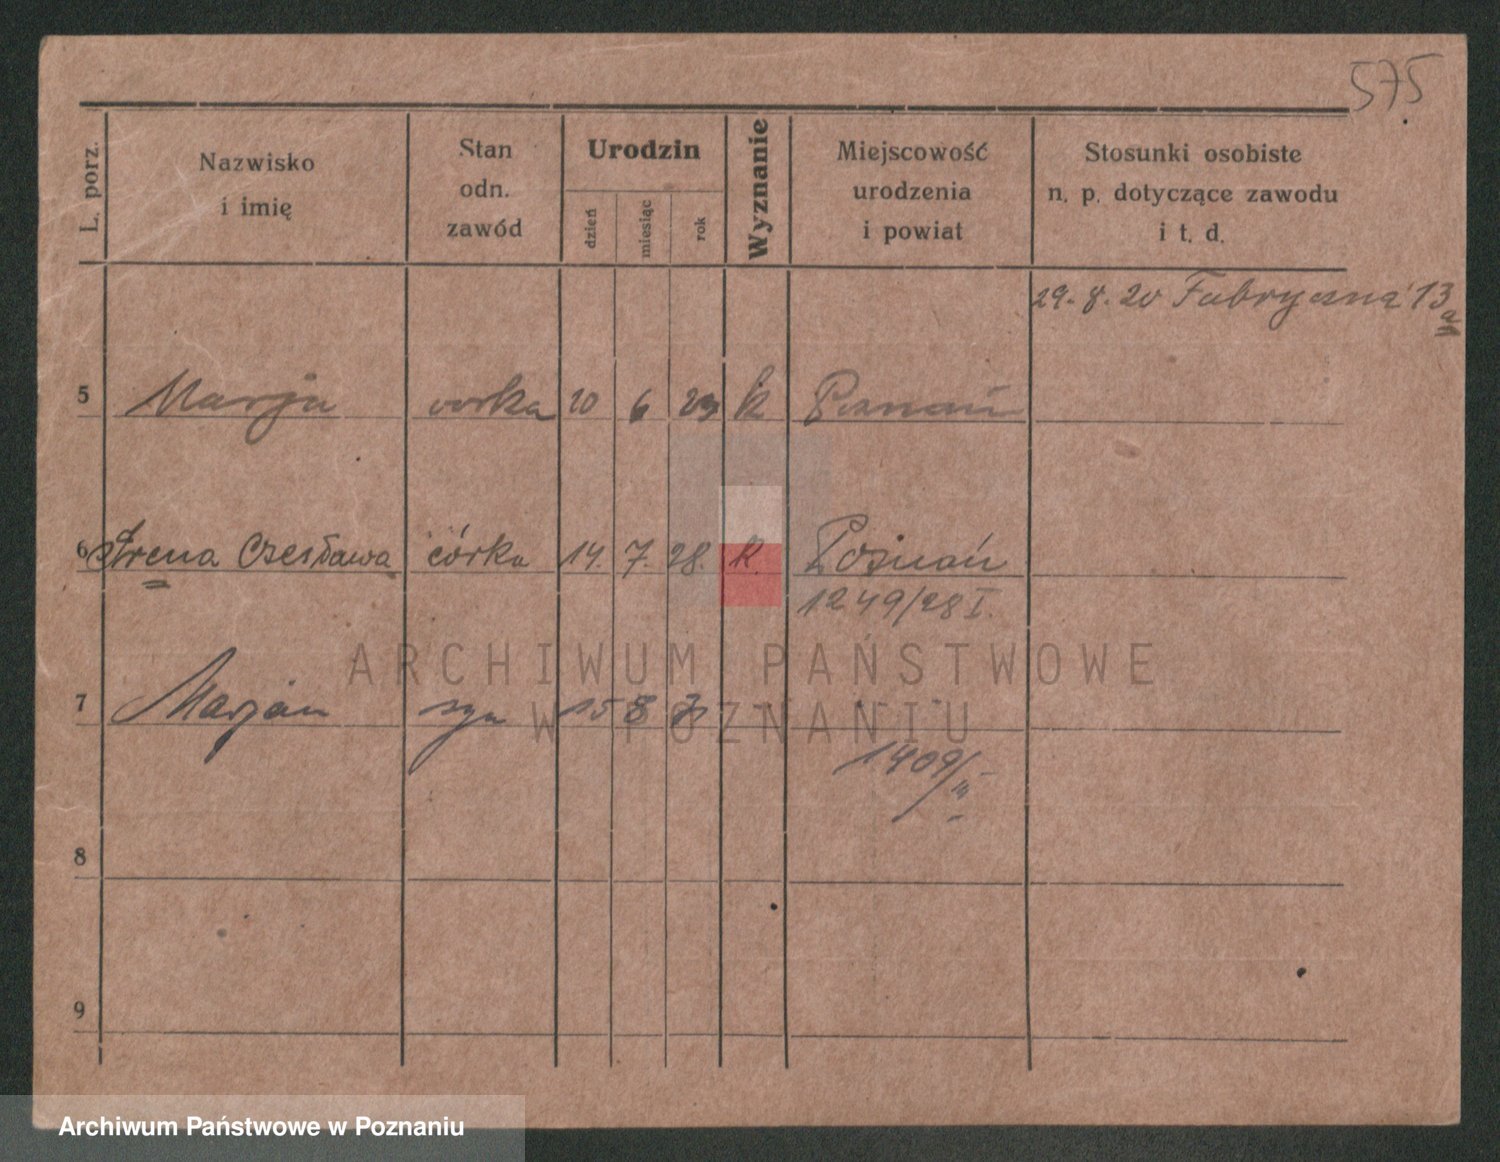 575
L. porz.
Nazwisko
i imię
Stan
odn.
zawód
Urodzin
dzień
miesiąc
rok
Wyznanie
Miejscowość
urodzenia
i powiat
Stosunki osobiste
n. p. dotyczące zawodu
i t. d.
29. 8. 20 Fabryczna 13 a
5 Marja corka 20 6 23 k Poznań
6 Irena Czesława córka 14. 7. 28. k. Poznań
1249/28 I.
7 Marjan syn 15 8 - " -
1409/III
8
9
ARCHIWUM PAŃSTWOWE
W POZNANIU
Archiwum Państwowe w Poznaniu